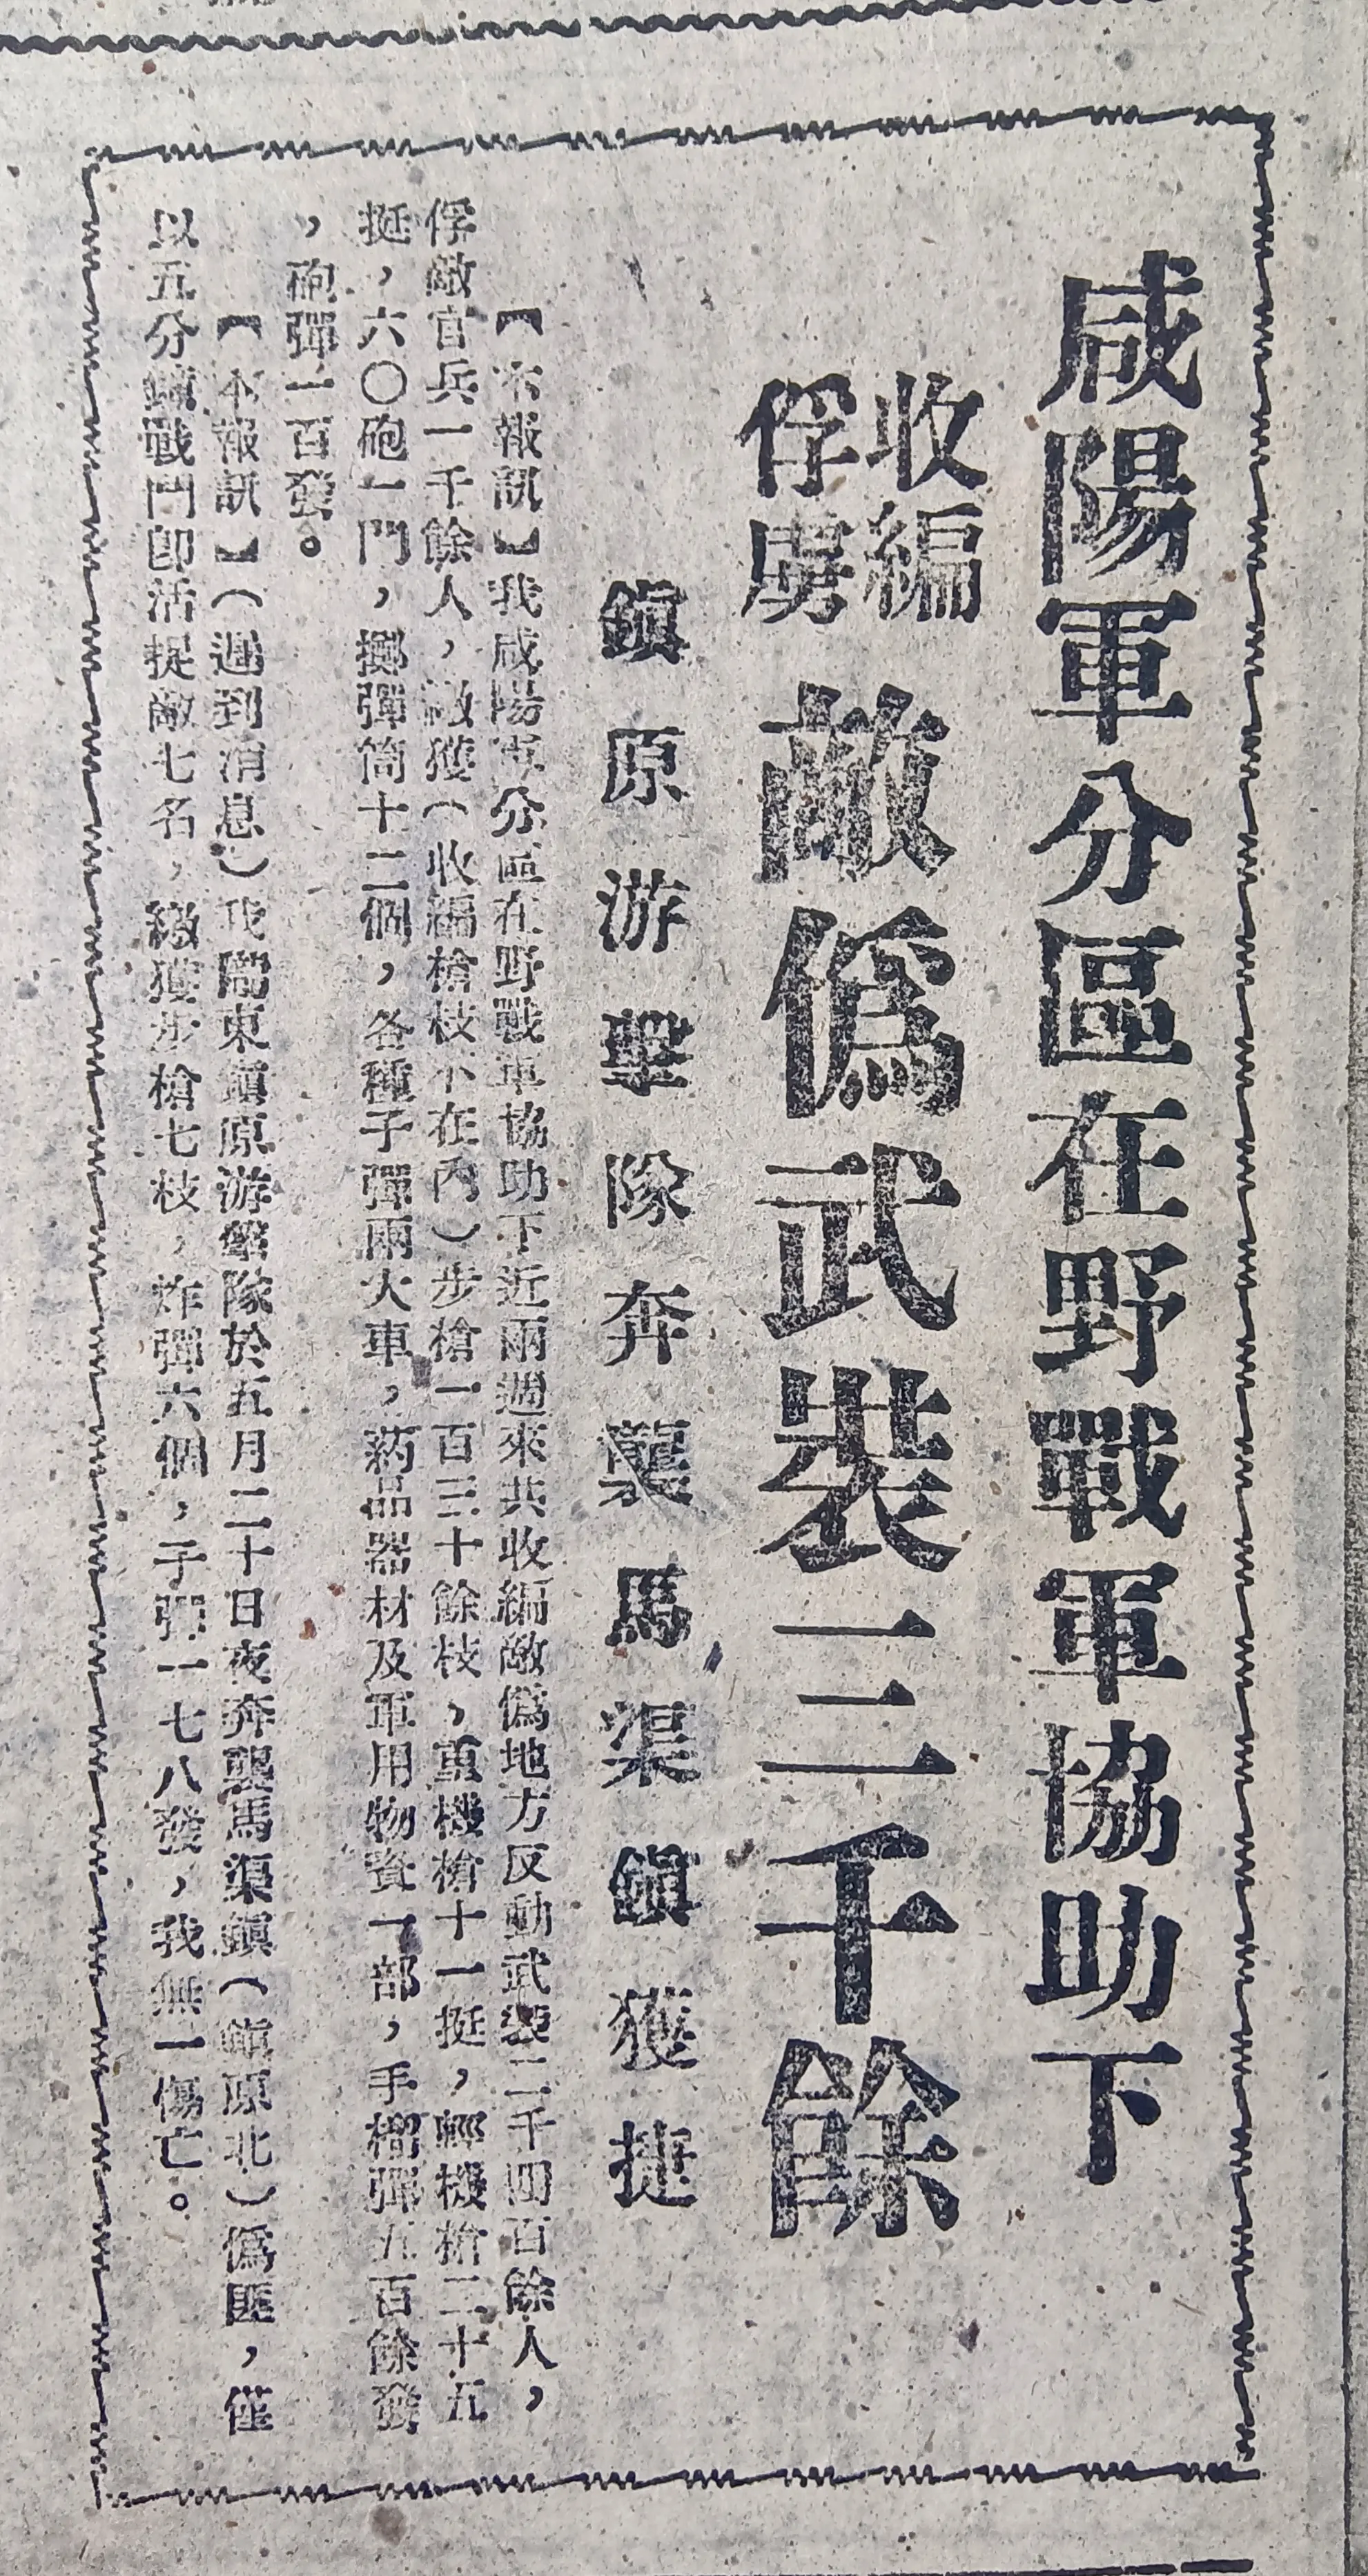 咸陽軍分區在野戰軍協助下
收編
俘虜
敵僞武裝三千餘
鎭原游擊隊奔襲馬渠鎭獲捷
【本報訊】我咸陽軍分區在野戰軍協助下近兩週來共收編敵僞地方反動武裝二千四百餘人，
俘敵官兵一千餘人，繳獲（收編槍枝不在內）步槍一百三十餘枝，重機槍十一挺，輕機槍二十五
挺，六〇砲一門，擲彈筒十二個，各種子彈兩火車，葯品器材及軍用物資一部，手榴彈五百餘發
，砲彈一百發。
【本報訊】（遲到消息）我隴東鎭原游擊隊於五月二十日夜奔襲馬渠鎭（鎭原北）僞匪，僅
以五分鐘戰鬥卽活捉敵七名，繳獲步槍七枝，炸彈六個，子彈一七八發，我無一傷亡。